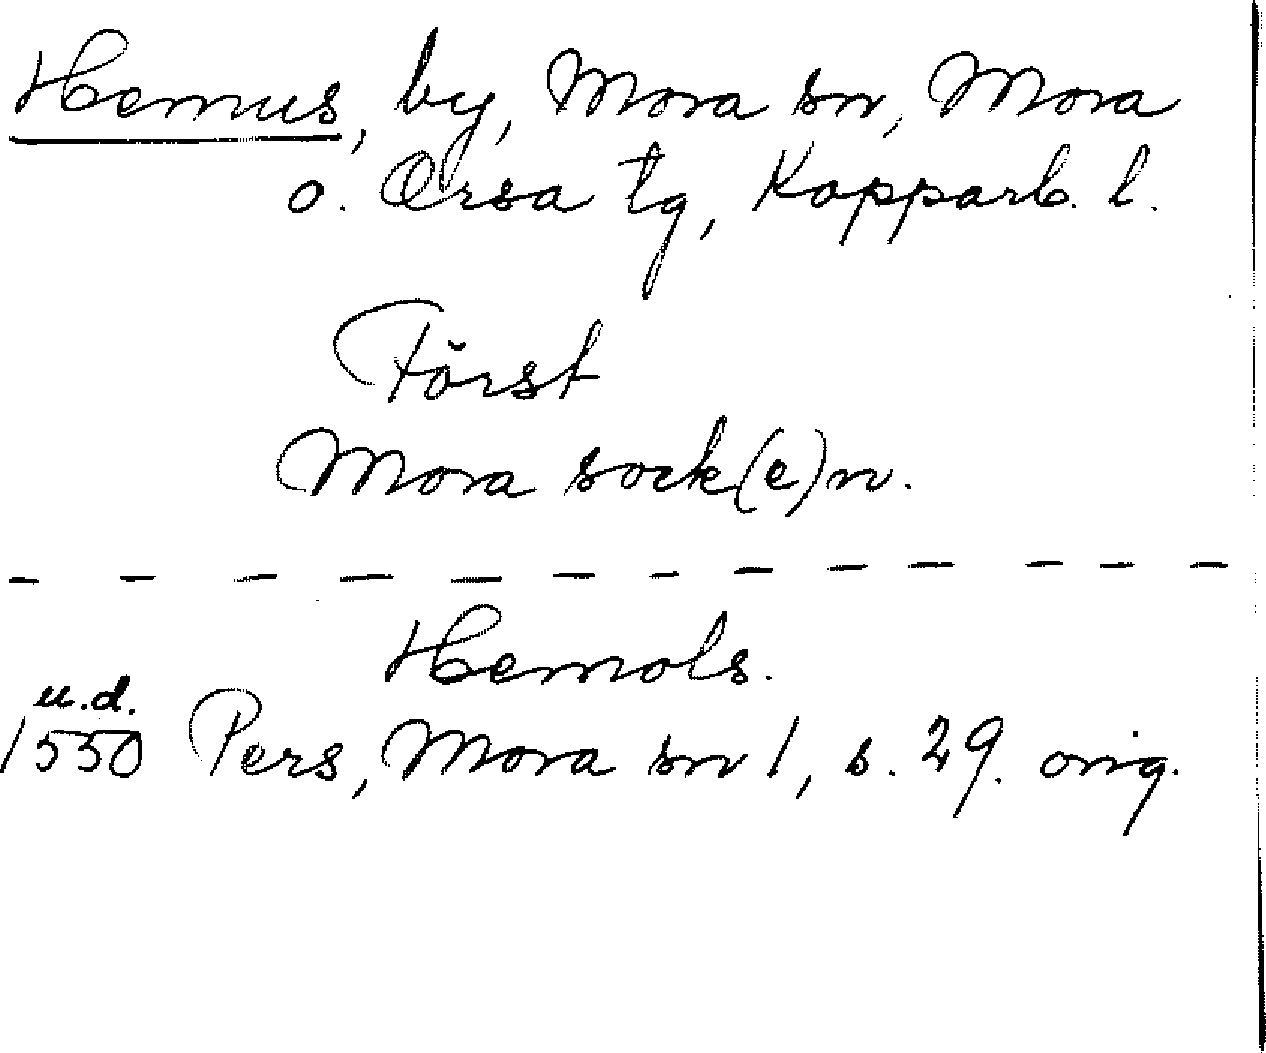 Hemus, by, Mora sn, Mora
o. Orsa tg, Kopparb. l.
Först
Mora sock(e)n.
- - - - - - - - - - - -
Hemols.
u.d.
1550 Pers, Mora sn 1, s. 29. orig.